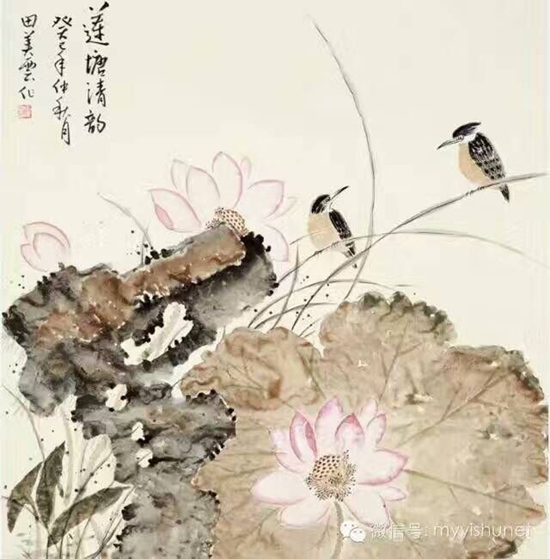 莲塘清韵
癸巳年仲秋月
田美云作
微信号: myyishunet